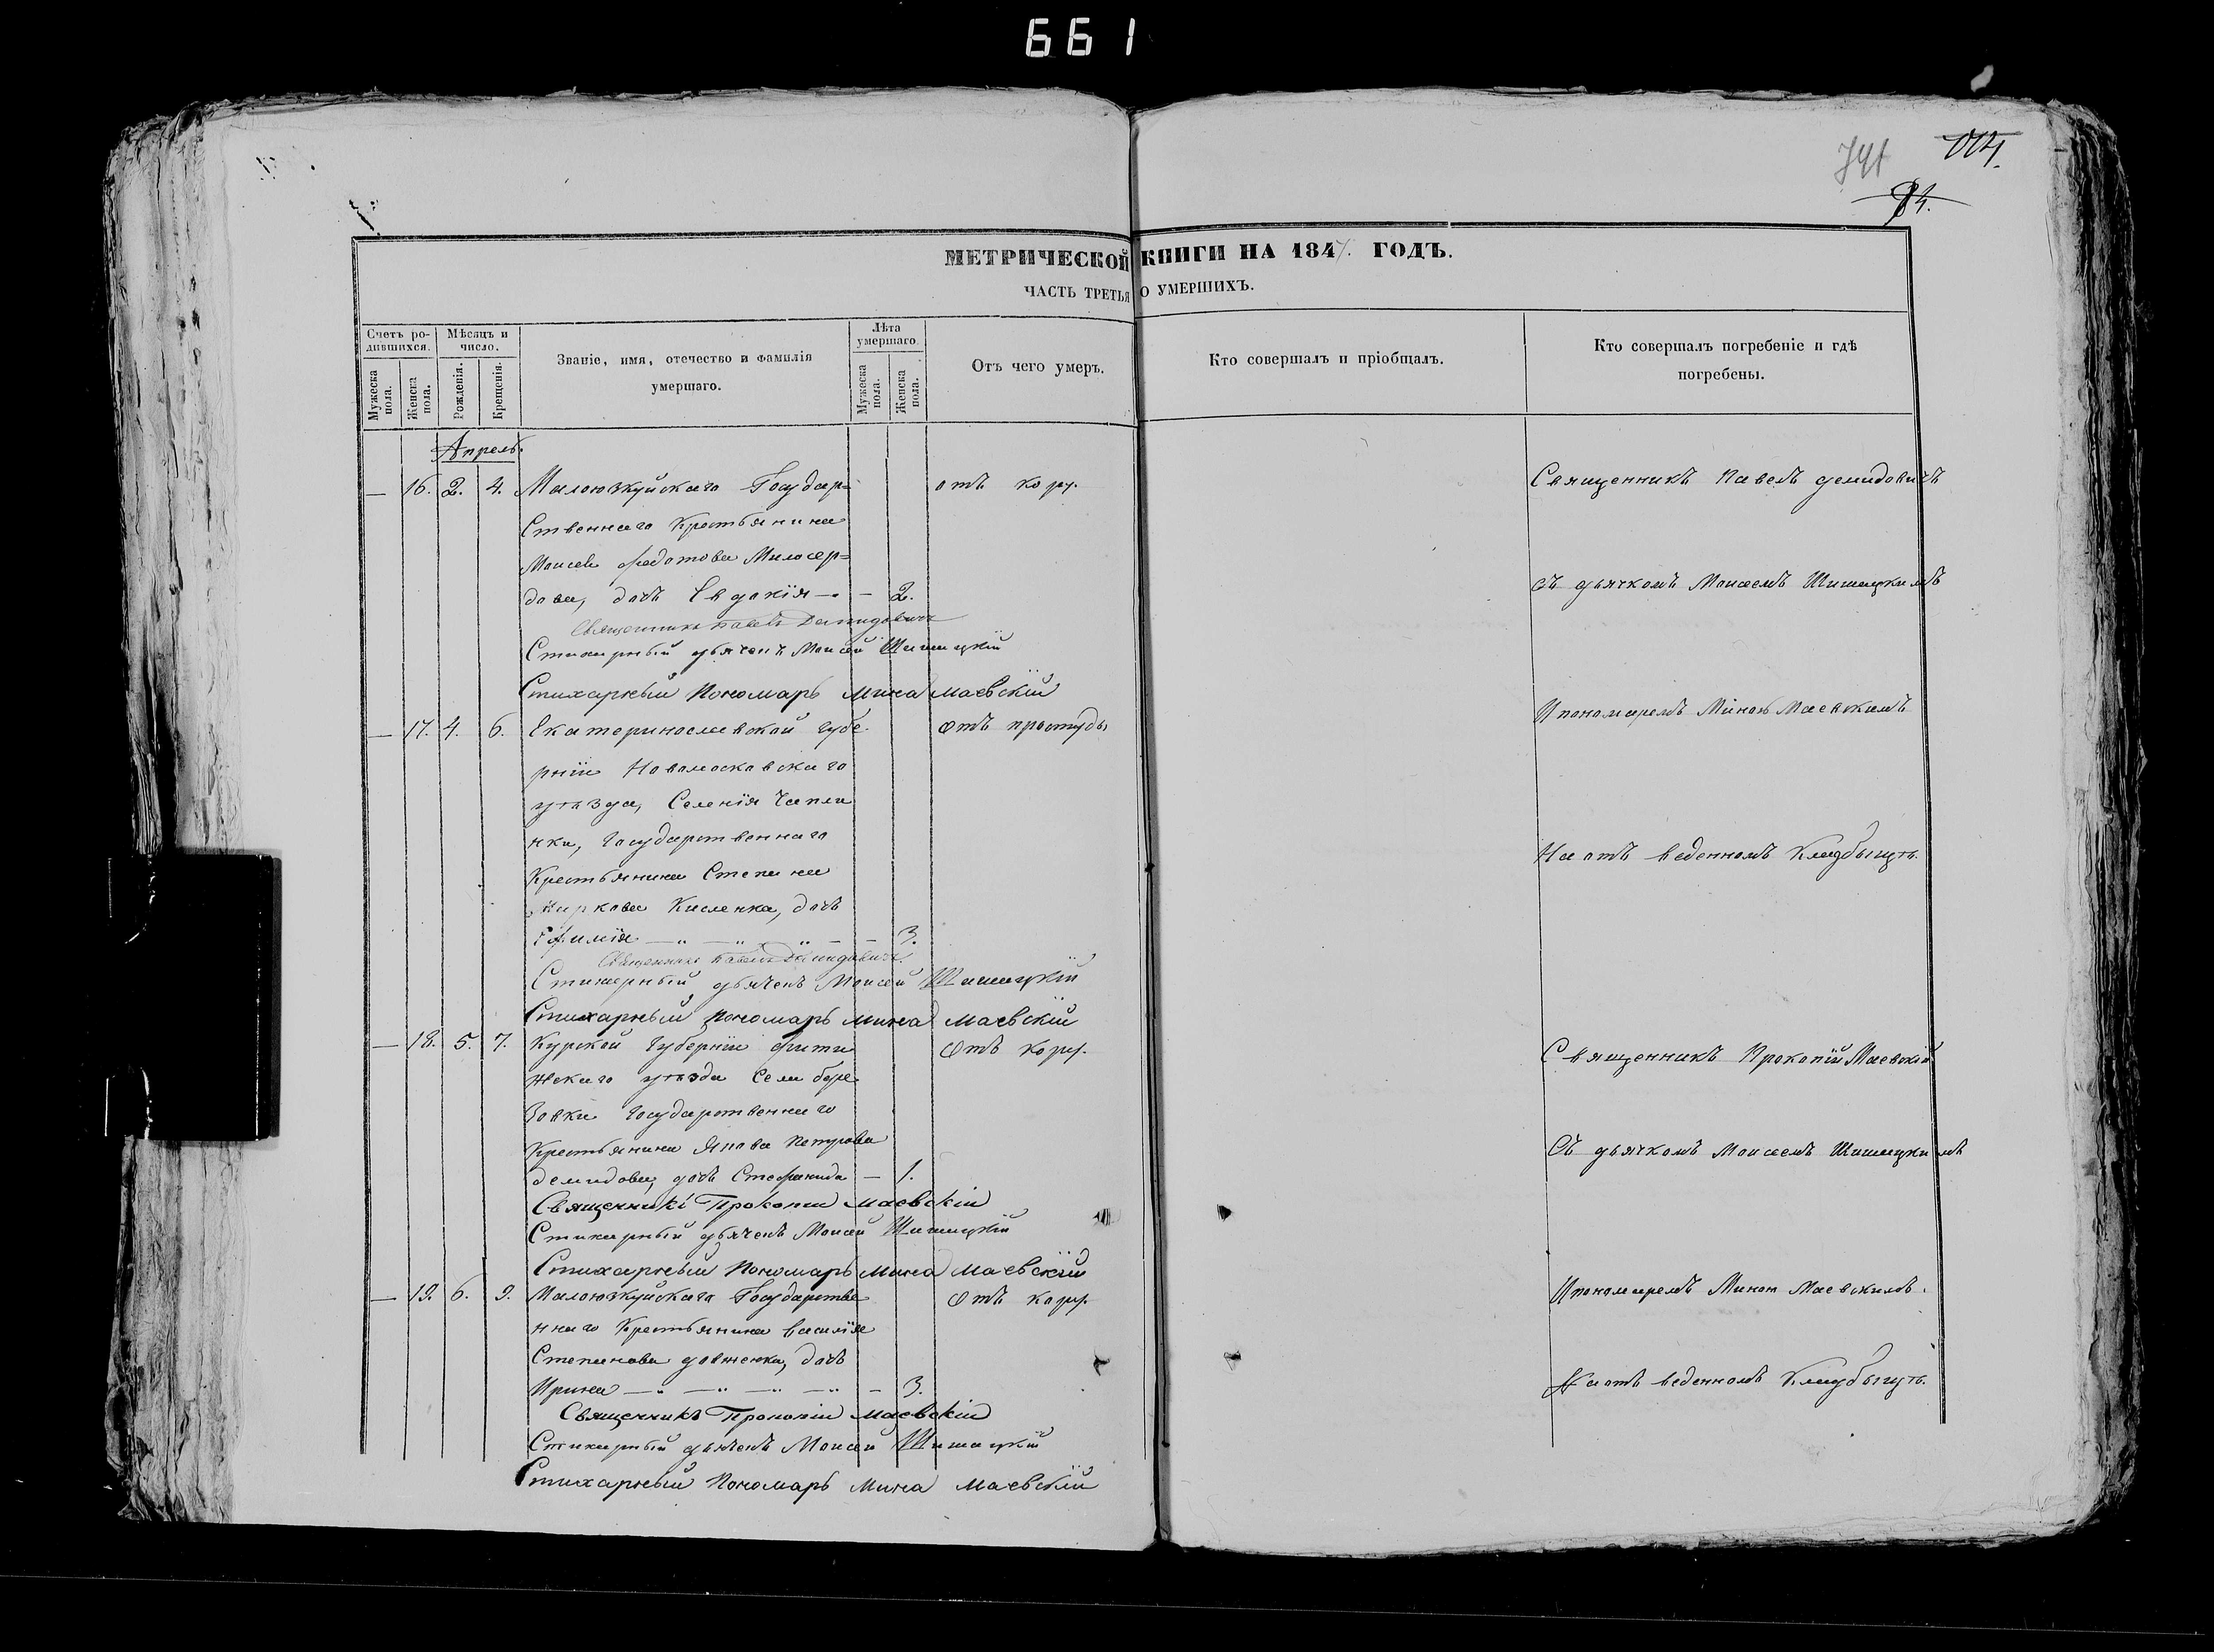 661
741
84.
МЕТРИЧЕСКОЙ КНИГИ НА 1847. ГОДЪ.
ЧАСТЬ ТРЕТЬЯ О УМЕРШИХЪ.
Счетъ ро-
дившихся.
Мужеска пола.
Женска пола.
Мѣсяцъ и
число.
Рожденія.
Крещенія.
Званіе, имя, отечество и фамилія
умершаго.
Лѣта
умершаго.
Мужеска пола.
Женска пола.
Отъ чего умеръ.
Кто совершалъ и пріобщалъ.
Кто совершалъ погребеніе и гдѣ
погребены.
Апрель.
— 16. 2. 4. Малоюзкуйскаго Государ= отъ кору.
ственнаго Крестьянина
Моисея Федотова Милосер=
дова, дочь Евдокія — 2.
Священникъ Павелъ Демидовичъ
Стихарный дьячекъ Моисей Шишацкій
Стихарный Пономарь Мина Маевскій
— 17. 4. 6. Екатеринославской губе отъ простуды
рніи Новомосковскаго
уѣзда, Селенія Чапли
нки, Государственнаго
Крестьянина Степана
Маркова Кисленка, дочь
Ефимія — „ — „ „ — — 3.
Священникъ Павелъ Демидовичъ
Стихарный дьячекъ Моисей Шишацкій
Стихарный Пономарь Мина Маевскій
— 18. 5. 7. Курской Губерніи Фати Отъ кору.
жскаго уѣзда Села бере
зовки Государственнаго
Крестьянина Якова Петрова
демидова, дочь Стефанида — 1.
Священникъ Прокопій Маевскій
Стихарный дьячекъ Моисей Шишацкій
Стихарный Пономарь Мина Маевскій
— 19. 6. 9. Малоюзкуйскаго Государстве Отъ кору.
ннаго Крестьянина Василія
Степанова довженка, дочь
Ирина — „ — „ — „ — „ — 3.
Священникъ Прокопій Маевскій
Стихарный дьячекъ Моисей Шишацкій
Стихарный Пономарь Мина Маевскій
Священникъ Павелъ демидовичъ
съ дьячкомъ Моисеемъ Шишацкимъ
И пономаремъ Миною Маевскимъ
На отъ веденномъ Кладбищѣ.
Священникъ Прокопій Маевскій
Съ дьячкомъ Моисеемъ Шишацкимъ
И пономаремъ Миною Маевскимъ.
На отъ веденномъ Кладбищѣ.